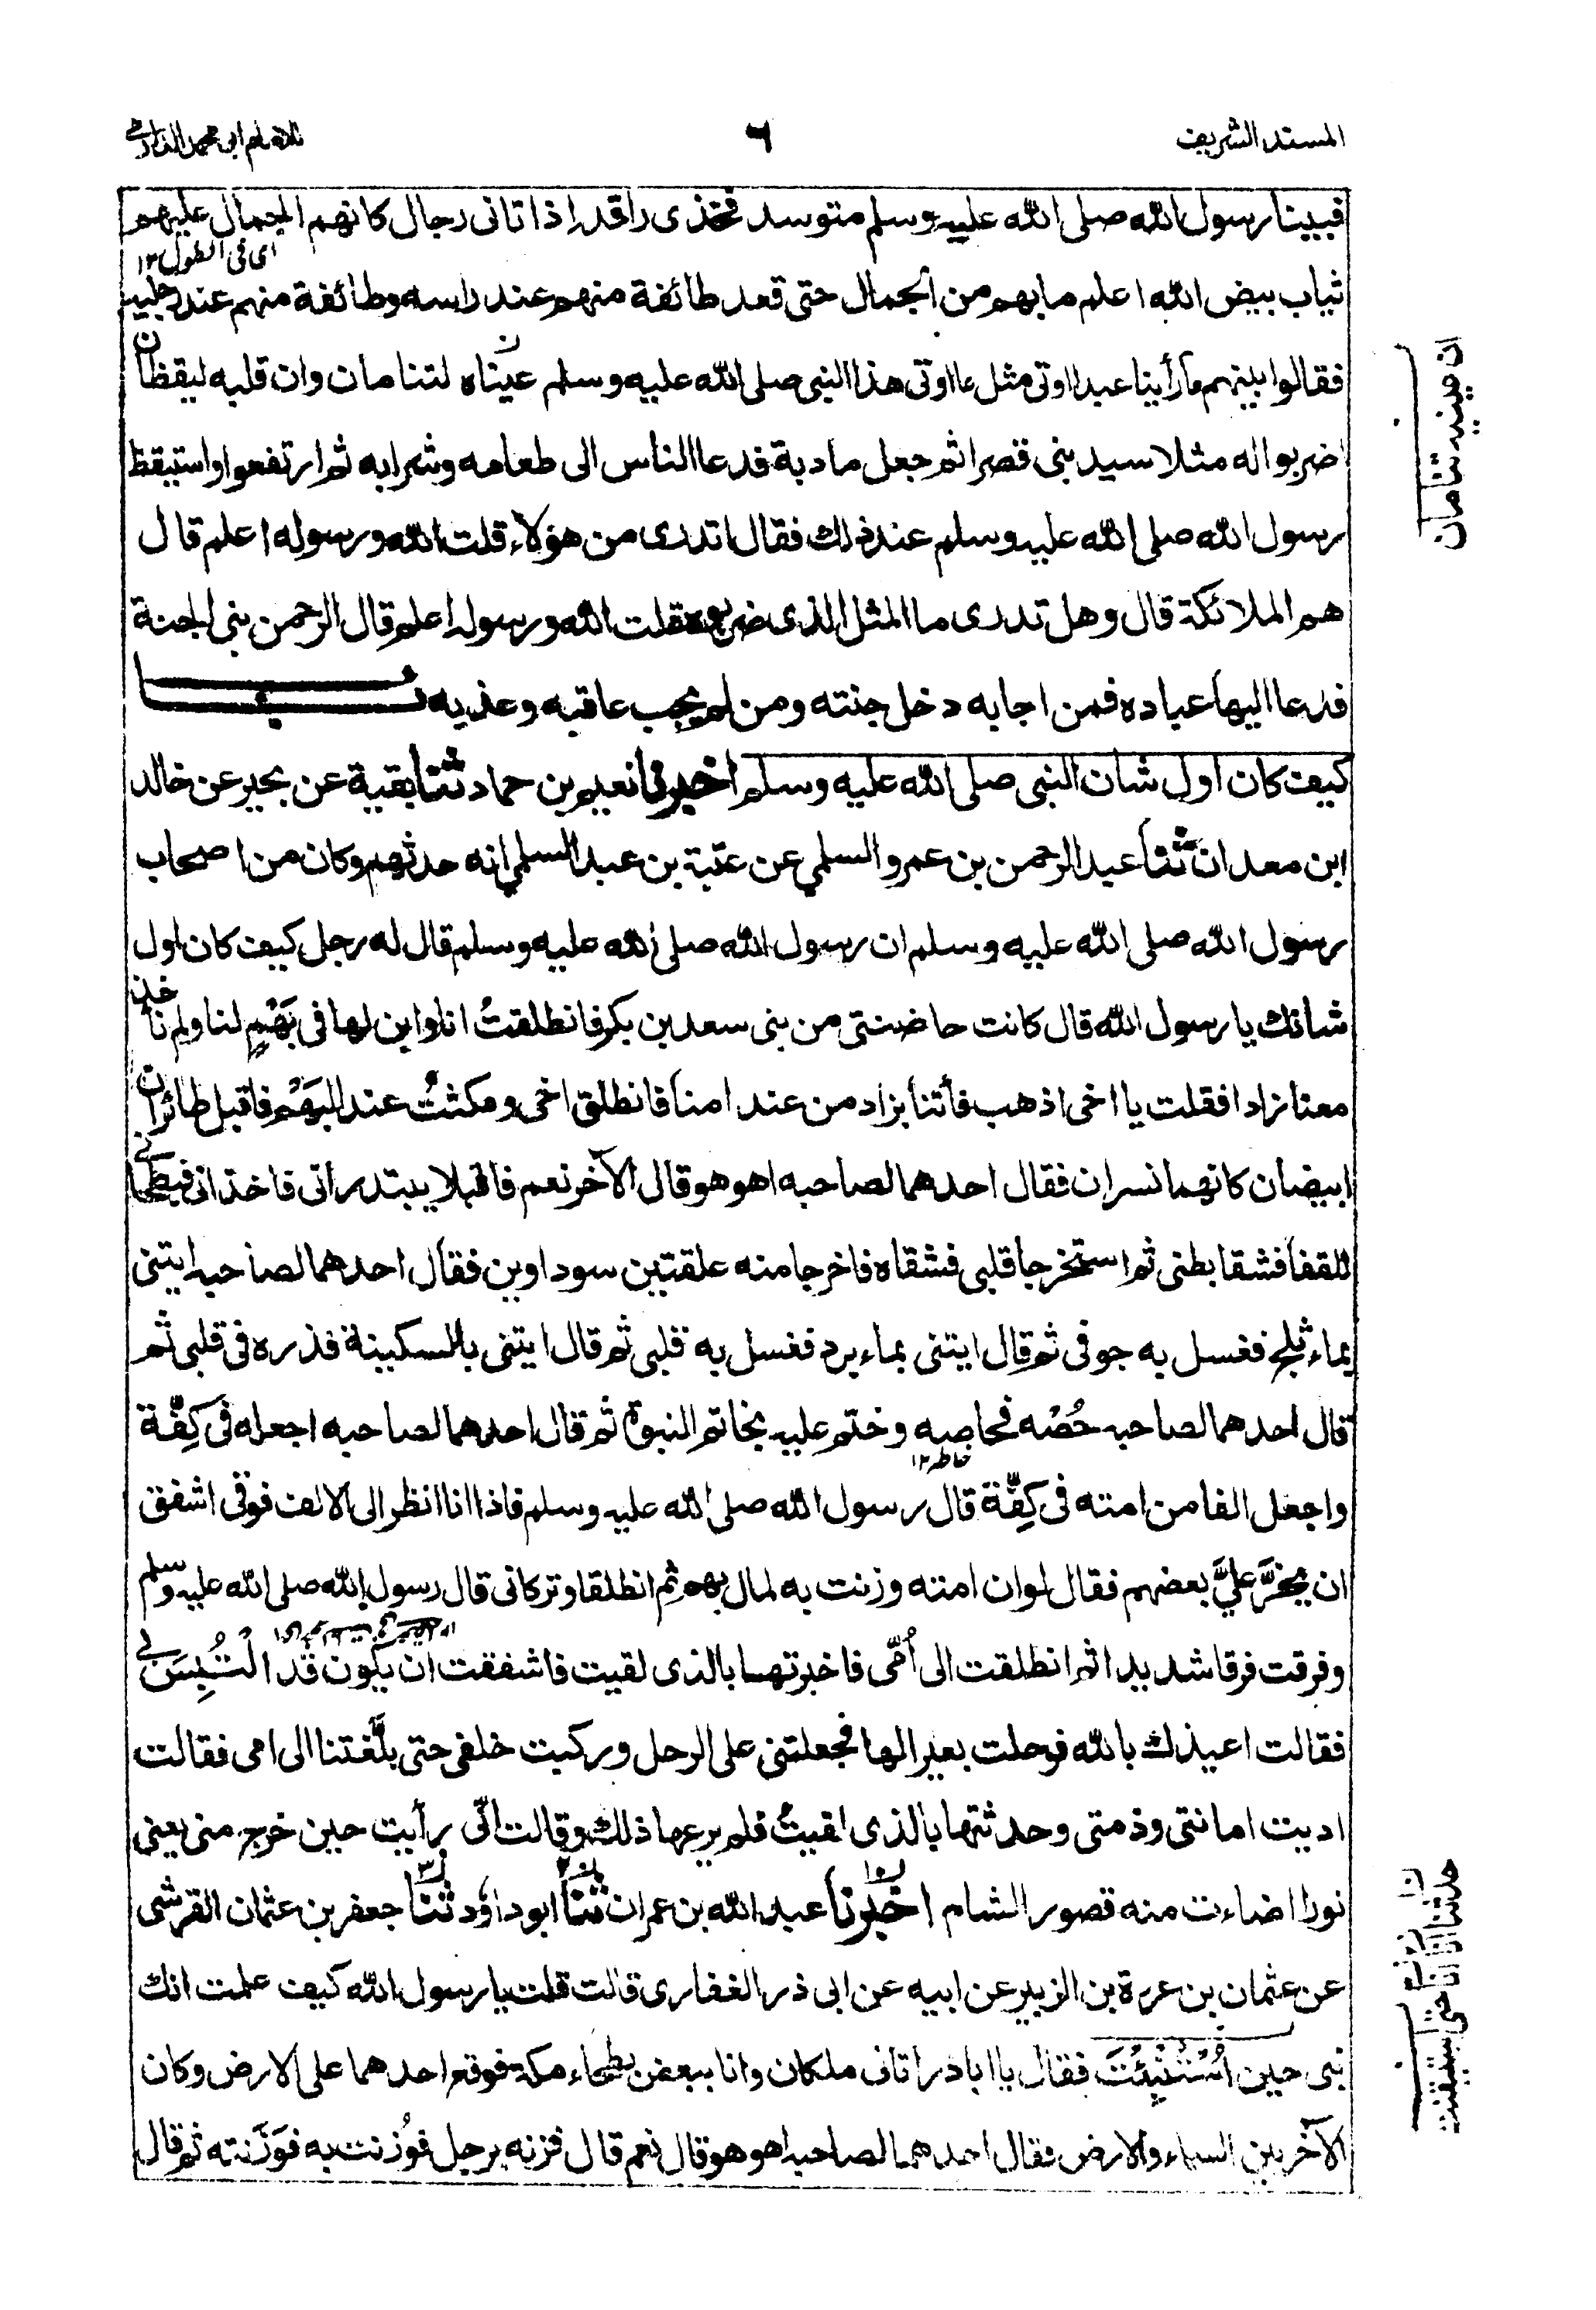 المسند الشريف
٦
للامام ابى محمد الدارمى
فبينا رسول الله صلى الله عليه وسلم متوسد فخذى راقد اذ اتانى رجال كانهم الجمال عليهم
اى فى الطول ١٢
ثياب بيض الله اعلم ما بهم من الجمال حتى قعد طائفة منهم عند راسه وطائفة منهم عند رجليه
فقالوا بينهم ما رأينا عبدا اوتى مثل ما اوتى هذا النبى صلى الله عليه وسلم عيناه لتنامان وان قلبه ليقظان
ان عينيه تنامان
اضربوا له مثلا سيد بنى قصرا ثم جعل مادبة فدعا الناس الى طعامه وشرابه ثم ارتفعوا واستيقظ
رسول الله صلى الله عليه وسلم عند ذلك فقال اتدرى من هؤلاء قلت الله ورسوله اعلم قال
هم الملائكة قال وهل تدرى ما المثل الذى ضربوه قلت الله ورسوله اعلم قال الرحمن بنى الجنة
فدعا اليها عباده فمن اجابه دخل جنته ومن لم يجب عاقبه وعذبه باب
كيف كان اول شان النبى صلى الله عليه وسلم اخبرنا نعيم بن حماد ثنا بقية عن بحير عن خالد
ابن معدان ثنا عبد الرحمن بن عمرو السلمي عن عتبة بن عبد السلمي انه حدثهم وكان من اصحاب
رسول الله صلى الله عليه وسلم ان رسول الله صلى الله عليه وسلم قال له رجل كيف كان اول
شانك يا رسول الله قال كانت حاضنتى من بنى سعد بن بكر فانطلقتُ انا وابن لها فى بَهْمٍ لنا ولم نأخذ
معنا زادا فقلت يا اخى اذهب فأتنا بزاد من عند امنا فانطلق اخى ومكثتُ عند البَهْم فاقبل طائران
ابيضان كانهما نسران فقال احدهما لصاحبه اهو هو قال الآخر نعم فاقبلا يبتدرانى فاخذانى فبطحانى
للقفا فشقا بطنى ثم استخرجا قلبى فشقاه فاخرجا منه علقتين سوداوين فقال احدهما لصاحبه ايتنى
بماء ثلج فغسل به جوفى ثم قال ايتنى بماء برد فغسل به قلبى ثم قال ايتنى بالسكينة فذره فى قلبى ثم
قال احدهما لصاحبه حُصْه فحاصه وختم عليه بخاتم النبوة ثم قال احدهما لصاحبه اجعله فى كِفّة
خاطه ١٢
واجعل الفا من امته فى كِفّة قال رسول الله صلى الله عليه وسلم فاذا انا انظر الى الالف فوقى اشفق
ان يخرَّ علىَّ بعضهم فقال لو ان امته وزنت به لمال بهم ثم انطلقا وتركانى قال رسول الله صلى الله عليه وسلم
وفرقت فرقا شديدا ثم انطلقت الى أُمّى فاخبرتها بالذى لقيت فاشفقت ان يكون قد الْتُبِسَ بى
فقالت اعيذك بالله فرحلت بعيرا لها فجعلتنى على الرحل وركبت خلفى حتى بلّغتنا الى امى فقالت
اديت امانتى وذمتى وحدثتها بالذى لقيتُ فلم يرعها ذلك وقالت انّى رأيت حين خرج منى يعنى
نورا اضاءت منه قصور الشام اخبرنا عبد الله بن عمران ثنا ابو داؤد ثنا جعفر بن عثمان القرشى
عن عثمان بن عروة بن الزبير عن ابيه عن ابى ذر الغفارى قالت قلت يا رسول الله كيف علمت انك
نبى حين اُسْتُنْبِئْتَ فقال يا اباذر اتانى ملكان وانا ببعض بطحاء مكة فوقع احدهما على الارض وكان
الآخر بين السماء والارض فقال احدهما لصاحبه اهو هو قال نعم قال فزنه برجل فوُزنت به فوَزَنته ثم قال